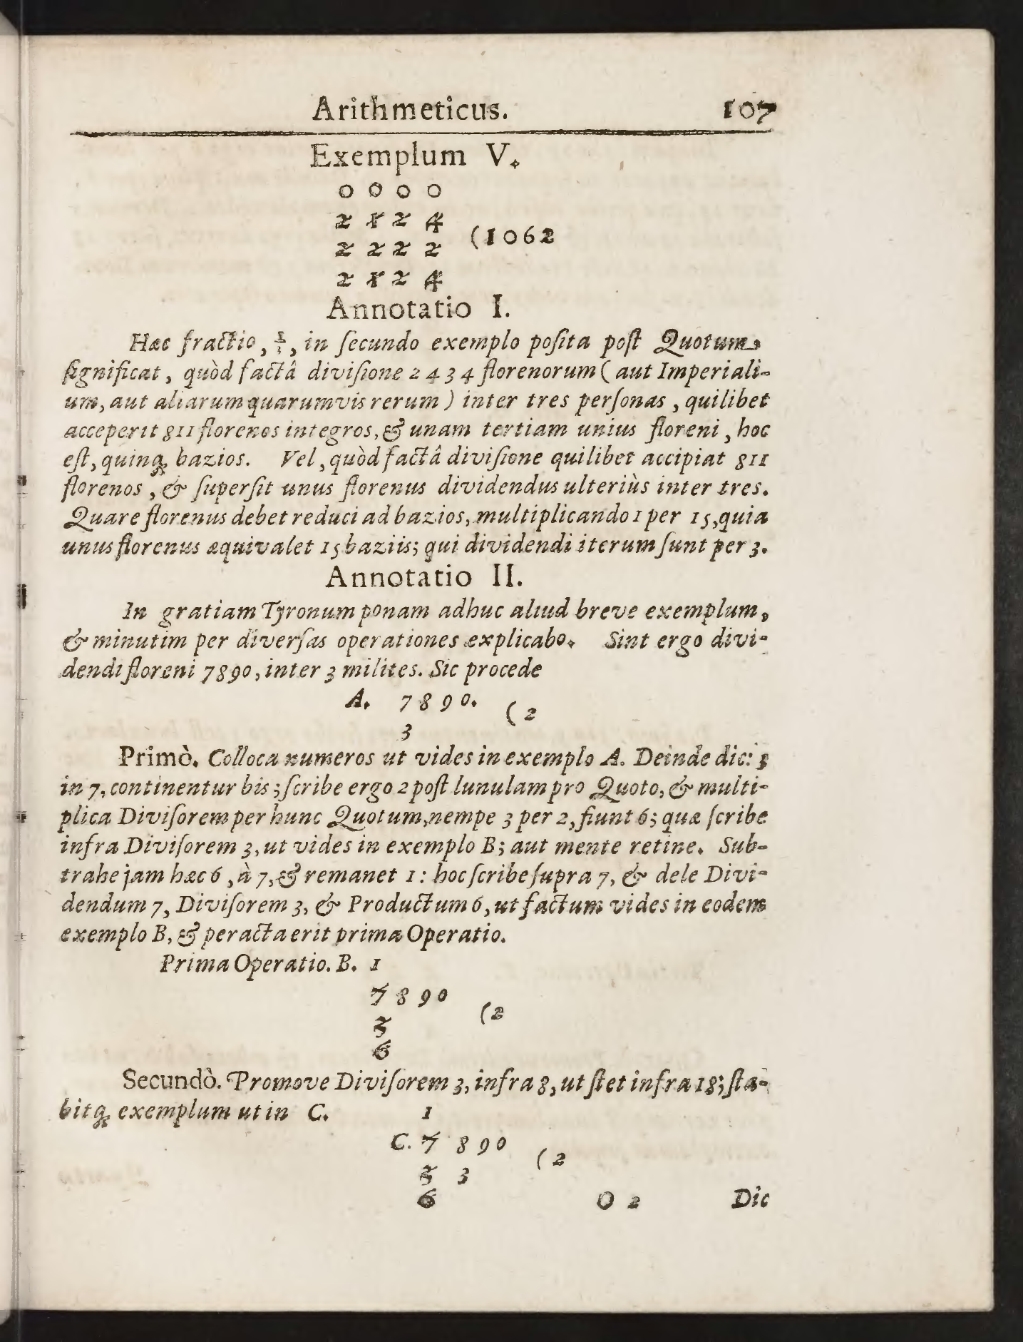 Arithmeticus. 107
Exemplum V.
0 0 0 0
2 1 2 4
2 2 2 2 (1062
2 1 2 4
Annotatio I.
Hæc fractio, ⅓, in ſecundo exemplo poſita poſt Quotum,
ſignificat, quòd factâ diviſione 2434 florenorum (aut Imperiali-
um, aut aliarum quarumvis rerum) inter tres perſonas, quilibet
acceperit 811 florenos integros, & unam tertiam unius floreni, hoc
eſt, quinq; bazios. Vel, quòd factâ diviſione quilibet accipiat 811
florenos, & ſuperſit unus florenus dividendus ulteriùs inter tres.
Quare florenus debet reduci ad bazios, multiplicando 1 per 15, quia
unus florenus æquivalet 15 baziis; qui dividendi iterum ſunt per 3.
Annotatio II.
In gratiam Tyronum ponam adhuc aliud breve exemplum,
& minutim per diverſas operationes explicabo. Sint ergo divi-
dendi floreni 7890, inter 3 milites. Sic procede
A. 7 8 9 0. (2
3
Primò. Colloca numeros ut vides in exemplo A. Deinde dic: 3
in 7, continentur bis; ſcribe ergo 2 poſt lunulam pro Quoto, & multi-
plica Diviſorem per hunc Quotum, nempe 3 per 2, fiunt 6; quæ ſcribe
infra Diviſorem 3, ut vides in exemplo B; aut mente retine. Sub-
trahe jam hæc 6, à 7, & remanet 1: hoc ſcribe ſupra 7, & dele Divi-
dendum 7, Diviſorem 3, & Productum 6, ut factum vides in eodem
exemplo B, & peracta erit prima Operatio.
Prima Operatio. B. 1
7 8 9 0 (2
3
6
Secundò. Promove Diviſorem 3, infra 8, ut ſtet infra 18; ſta-
bitq; exemplum ut in C. 1
C. 7 8 9 0 (2
3 3
6
O 2 Dic